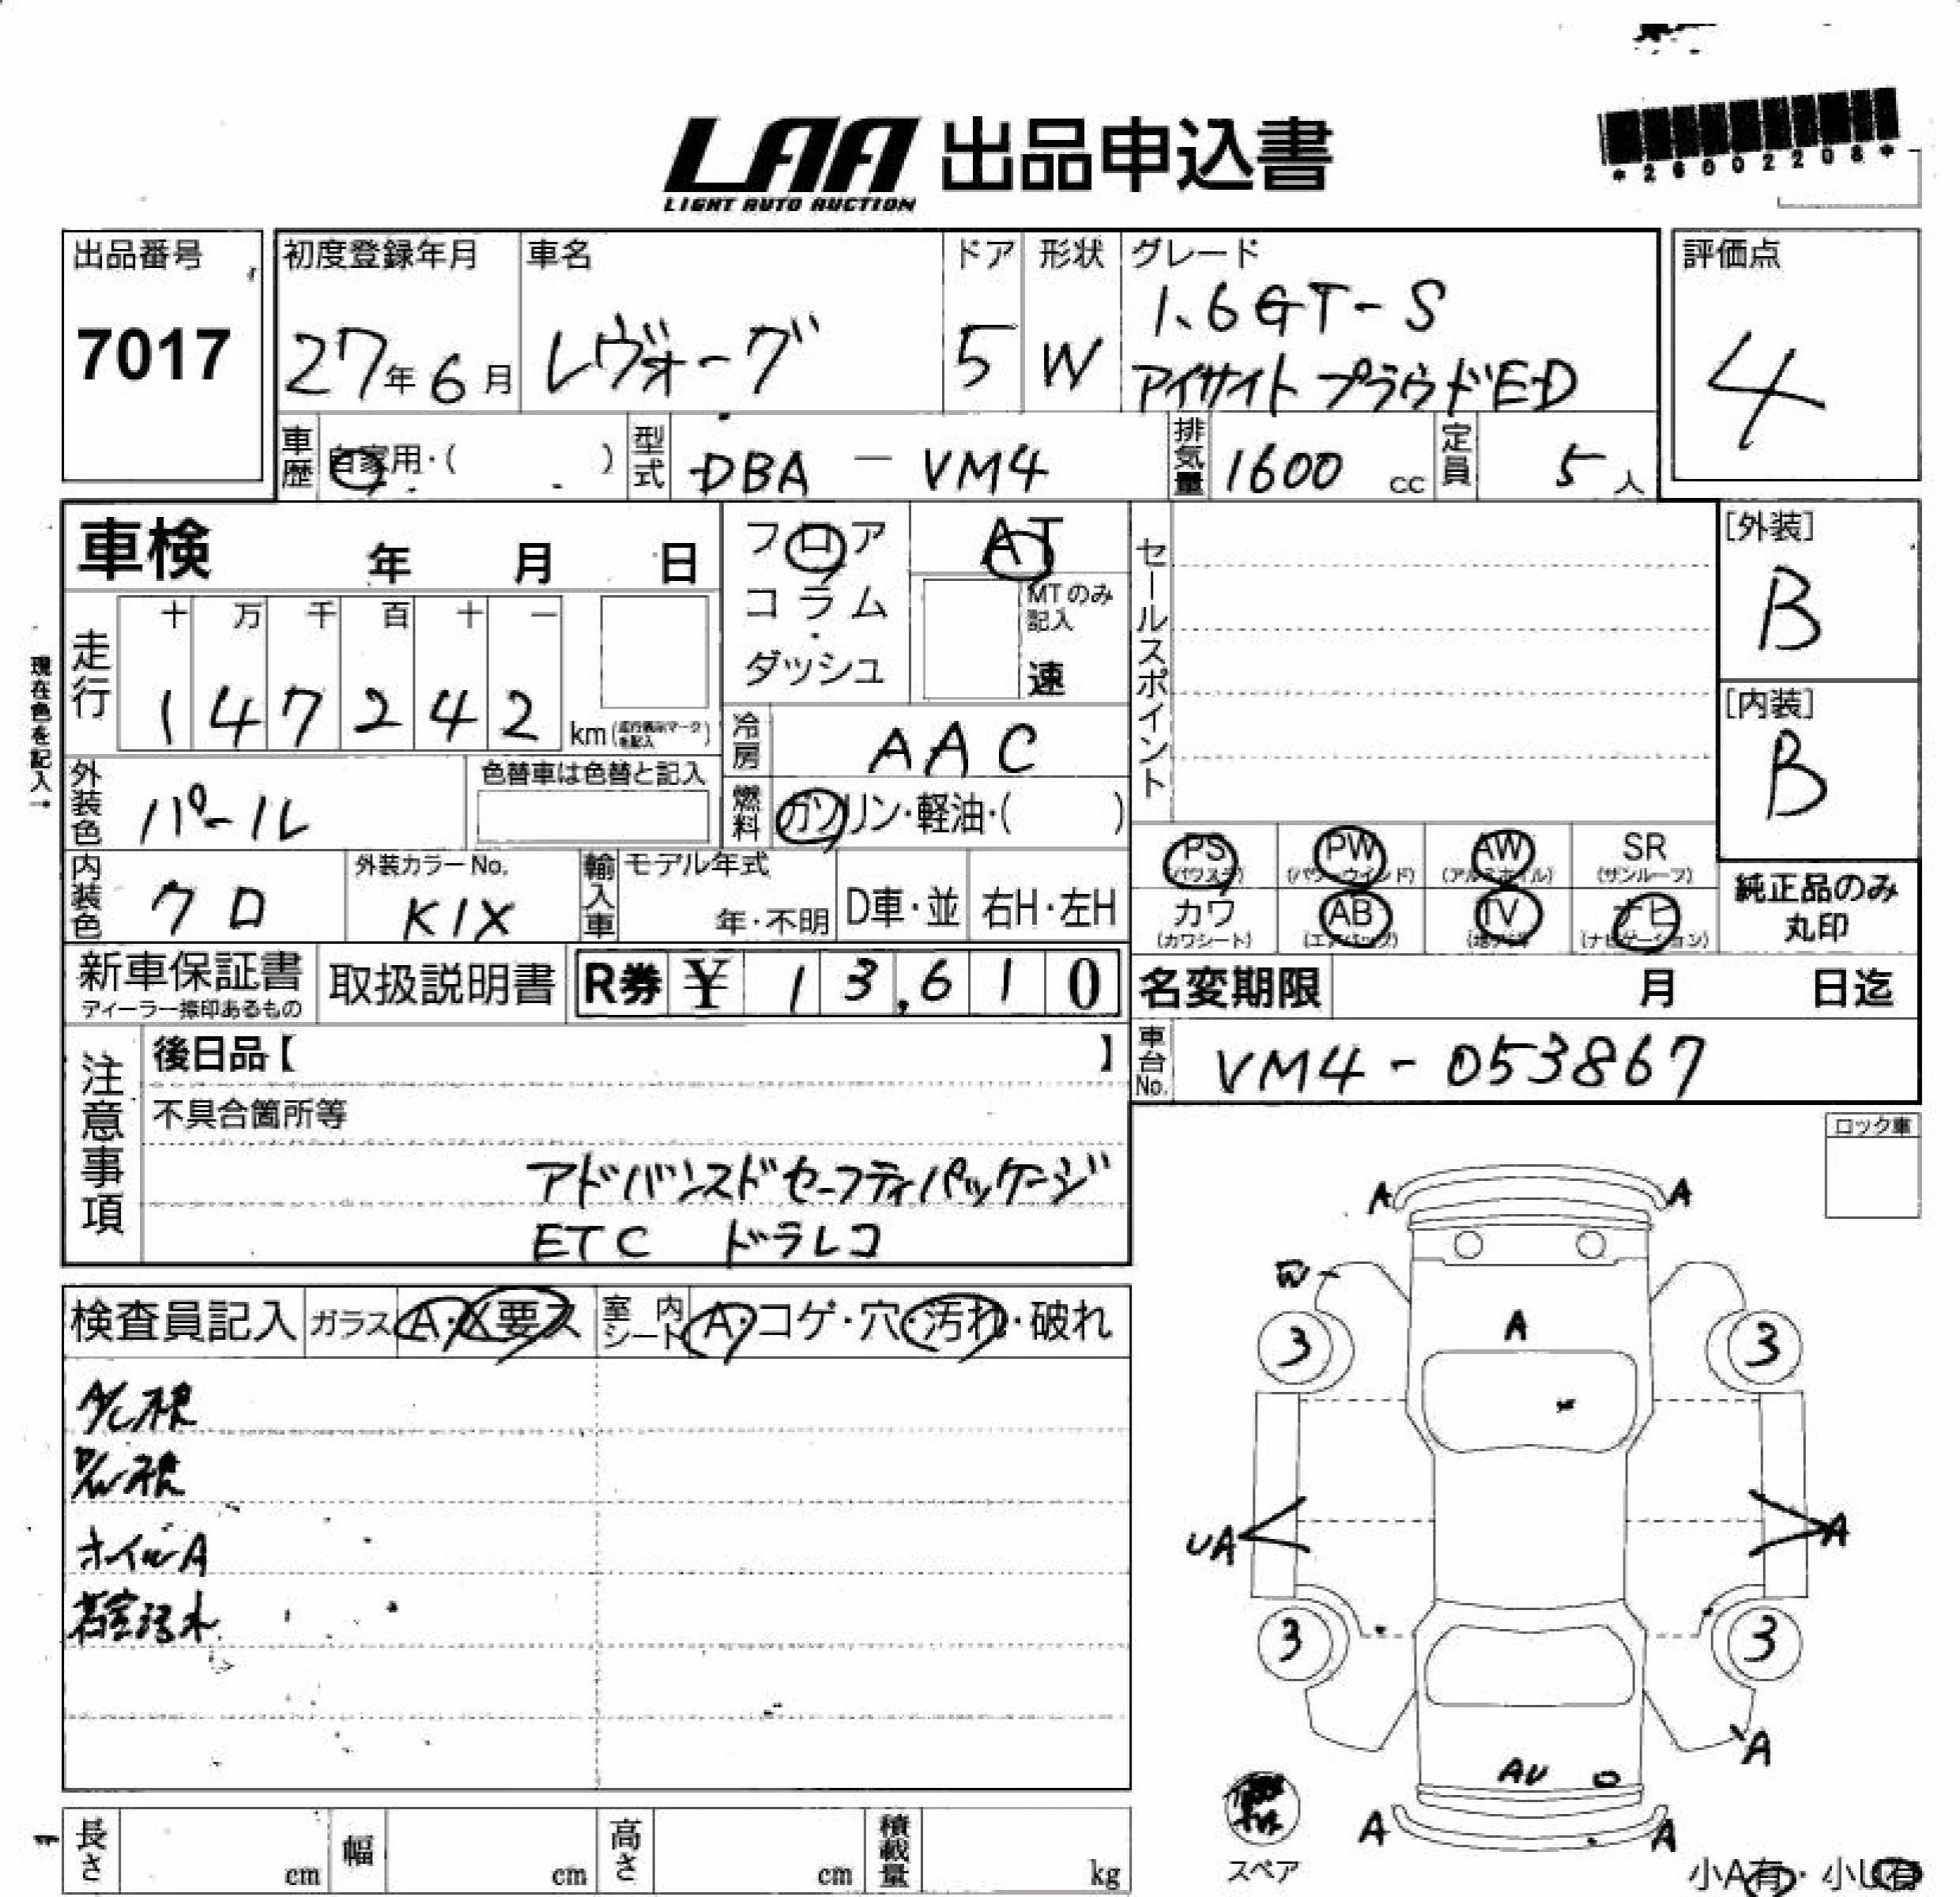 LAA 出品申込書
LIGHT AUTO AUCTION
*26002208*
出品番号
7017
初度登録年月
27年6月
車名
レヴォーグ
ドア
5
形状
W
グレード
1.6GT-S
アイサイト プラウドED
評価点
4
車歴
自家用・( )
型式
DBA - VM4
排気量
1600 cc
定員
5 人
車検 年 月 日
フロア
コラム
・
ダッシュ
AT
MTのみ
記入
速
セールスポイント
[外装]
B
[内装]
B
現在色を記入→
走行
十 万 千 百 十 一
1 4 7 2 4 2
km(走行表示マークを記入)
冷房
AAC
外装色
パール
色替車は色替と記入
燃料
ガソリン・軽油・( )
内装色
クロ
外装カラーNo.
K1X
輸入車
モデル年式
年・不明
D車・並
右H・左H
PS
(パワステ)
PW
(パワーウインド)
AW
(アルミホイル)
SR
(サンルーフ)
カワ
(カワシート)
AB
(エアバッグ)
TV
ナビ
(ナビゲーション)
純正品のみ
丸印
新車保証書
ディーラー捺印あるもの
取扱説明書
R券 ¥ 1 3,6 1 0
名変期限 月 日迄
車台No.
VM4-053867
注意事項
後日品【 】
不具合箇所等
アドバンスドセーフティパッケージ
ETC ドラレコ
ロック車
検査員記入
ガラス
A・X要ス
室内シート
A・コゲ・穴・汚れ・破れ
ホイルA
A A
3 A 3
UA A
3 3
A
AU
A A
スペア
小A有・小U有
長さ cm
幅 cm
高さ cm
積載量 kg